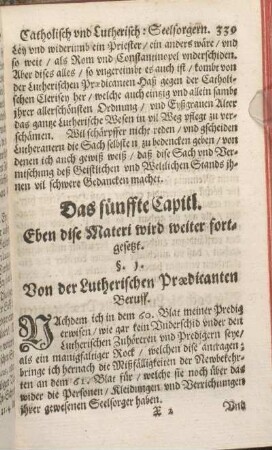 Catholisch vnd Lutherisch: Seelsorgern. 339
Ley vnd widerumb ein Priester / ein anders wäre / vnd
so weit / als Rom vnd Constantinopel vnderschiden.
Aber dises alles / so vngereimbt es auch ist / kombt von
der Lutherischen Prædicanten Haß gegen der Catholi-
schen Clerisey her / welche auch eintzig vnd allein sambt
jhrer allerschönsten Ordnung / vnd Eyßgrauen Alter
das gantze Lutherische Wesen in vil Weg pflegt zu ver-
schämen. Wil schärpffer nicht reden / vnd gscheiden
Lutheranern die Sach selbsten zu bedencken geben / von
denen ich auch gewiß weiß / daß dise Sach vnd Ver-
mischung deß Geistlichen vnd Weltlichen Stands jh-
nen vil schwere Gedancken machet.
Das fünffte Capitl.
Eben dise Materi wird weiter fort-
gesetzt.
§. 1.
Von der Lutherischen Prædicanten
Beruff.
NAchdem ich in dem 60. Blat meiner Predig
erwisen / wie gar kein Vnderschid vnder den
Lutherischen Zuhörern vnd Predigern seye /
als ein manigfaltiger Rock / welchen dise antragen;
bringe ich hernach die Mißfälligkeiten der Newbekehr-
ten an dem 61. Blat für / welche sie noch über das
wider die Personen / Kleidungen vnd Verrichtungen
jhrer gewesenen Seelsorger haben.
X 2 Vnd